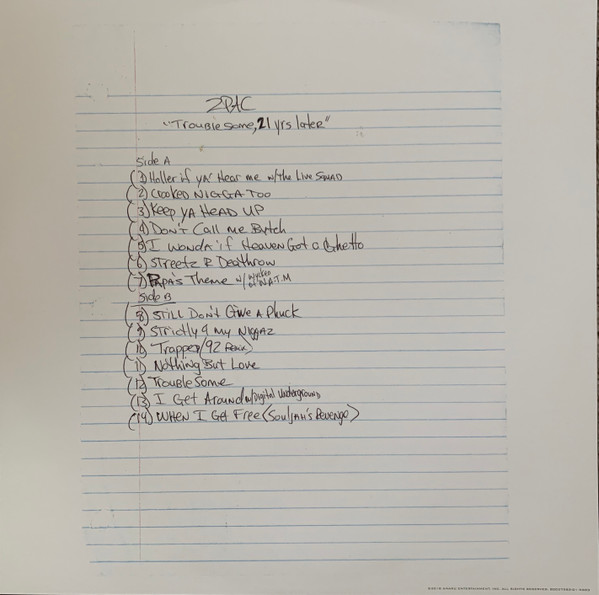 2PAC
"Troublesome, 21 yrs later"
Side A
(1) Holler if ya' Hear me w/the Live Squad
(2) Crooked Nigga Too
(3) Keep Ya Head Up
(4) Don't Call me Bytch
(5) I wonda' if Heaven Got a Ghetto
(6) Streetz R Deathrow
(7) Papa's Theme w/ wycked
of N.A.T.M
Side B
(8) Still Don't Give A Phuck
(9) Strictly 4 My Niggaz
(10) Trapped (92 Remix)
(11) Nothing But Love
(12) TroubleSome
(13) I Get Around w/Digital Underground
(14) When I Get Free (Souljah's Revenge)